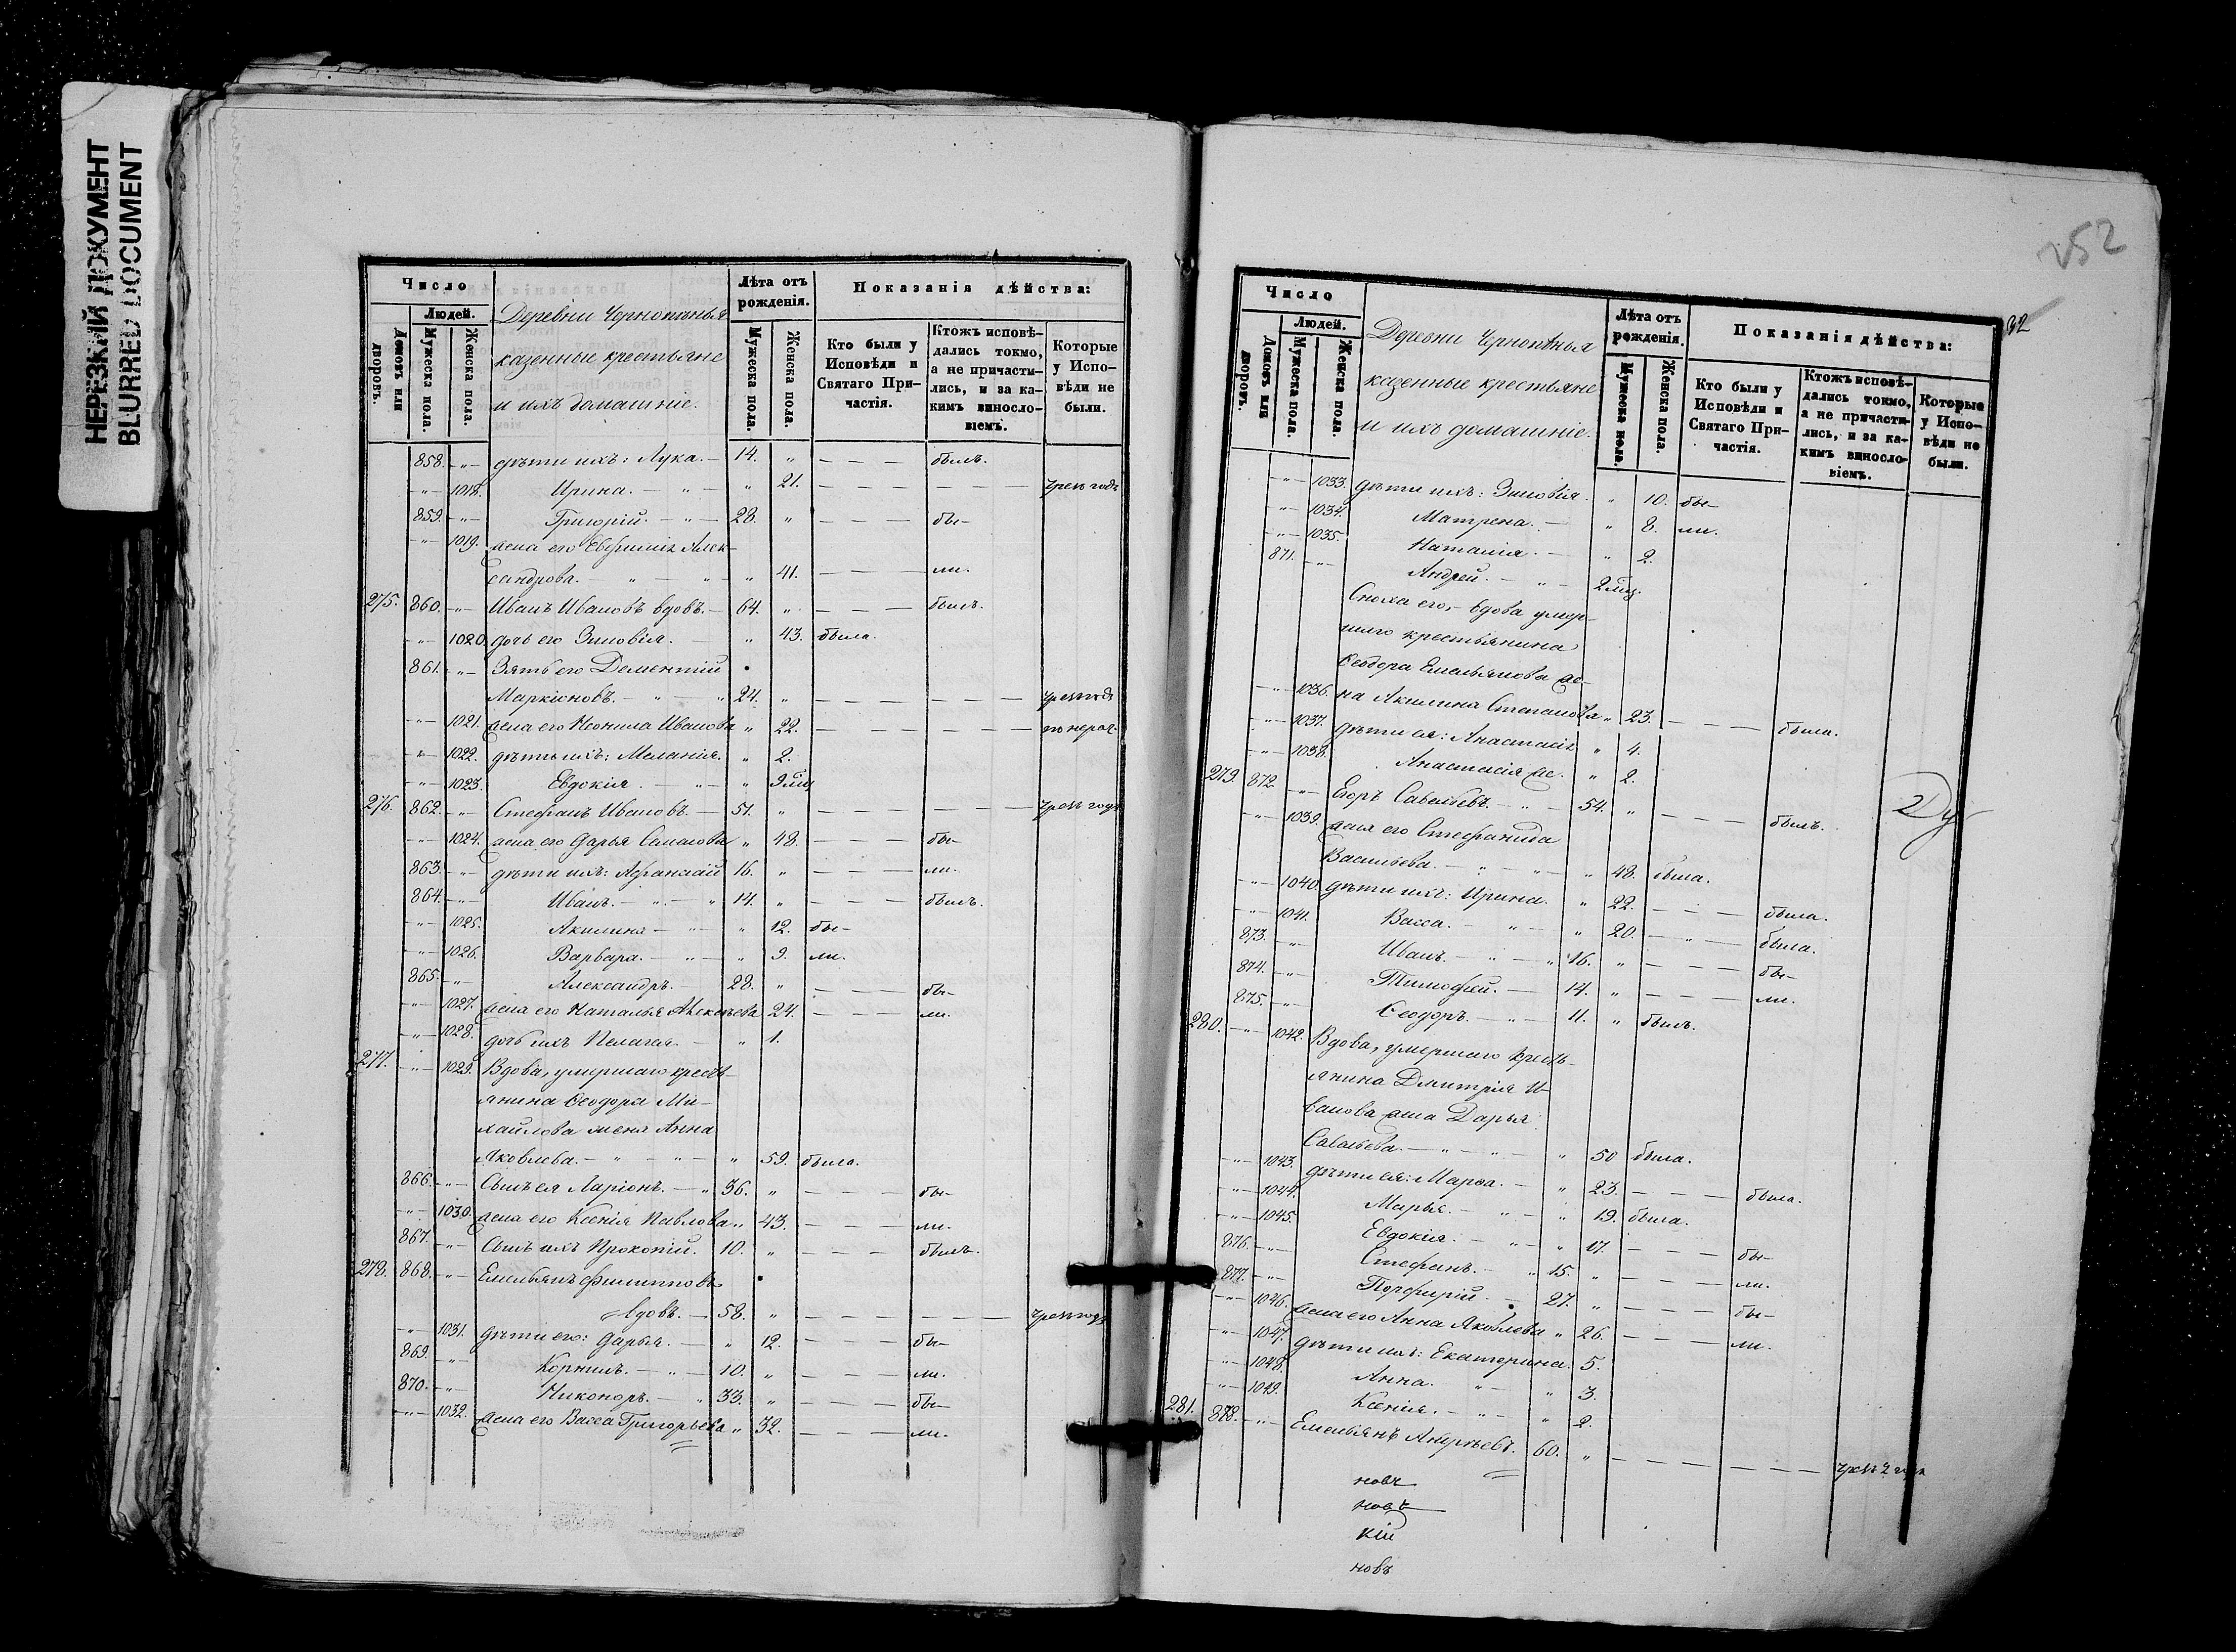 НЕРЕЗКИЙ ДОКУМЕНТ
BLURRED DOCUMENT
Число
Людей.
Домовъ или дворовъ.
Мужеска пола.
Женска пола.
Деревни Чернопенья
казенные крестьяне
и ихъ домашніе.
Лѣта отъ рожденія.
Мужеска пола.
Женска пола.
Показанія дѣйства:
Кто были у Исповѣди и Святаго Причастія.
Ктожъ исповѣдались токмо, а не причастились, и за какимъ винословіемъ.
Которые у Исповѣди не были.
858. -"- дѣти ихъ: Лука. — 14. " — — — былъ.
-"- 1018. Ирина. — " — " 21. — — — — — —
859. -"- Григорій. — " — 28. " — — — бы-
-"- 1019. жена его Евфимія Алек-
сандрова. — " — " — " 41. — — — ли.
275. 860. -"- Иванъ Ивановъ вдовъ. — 64. " — — — былъ.
-"- 1020. дочь его Зиновія. — " 43. была.
861. -"- Зять его Дементій
Маркіановъ. — " — " 24. " — — — — — —
-"- 1021. жена его Неонила Иванова " 22. — — — — — —
-"- 1022. дѣти ихъ: Меланія. " 2.
-"- 1023. Евдокія. — " — "
276. 862. -"- Стефанъ Ивановъ. — 51. " — — — — — — чрезъ годъ
-"- 1024. жена его Дарья Семенова " 48. — — — бы-
863. -"- дѣти ихъ: Афанасій 16. " — — — ли.
864. -"- Иванъ. — " — " 14. " — — — былъ.
-"- 1025. Акилина — " — " 12. бы-
-"- 1026. Варвара. — " — " 9. ли.
865. -"- Александръ. — 28. " — — — бы-
-"- 1027. жена его Наталья Алексѣева 24. — — — ли.
-"- 1028. дочь ихъ Пелагея. — " 1.
277. -"- 1029. Вдова, умершаго кресть-
янина Ѳеодора Ми-
хайлова жена Анна
Яковлева. — " — " — " 59. была.
866. -"- Сынъ ея Ларіонъ. — " 36. " — — — бы-
-"- 1030. жена его Ксенія Павлова " 43. — — — ли.
867. -"- Сынъ ихъ Прокопій. 10. " — — — былъ.
278. 868. -"- Емельянъ Филипповъ
вдовъ. — 58. " — — — — — — чрезъ годъ
-"- 1031. дѣти его: Дарья. — " 12. — — — бы-
869. -"- Корнилъ. — " — 10. " — — — ли.
870. -"- Никоноръ. — " 33. " — — — бы-
-"- 1032. жена его Васса Григорьева " 32. — — — ли.
252
32
Число
Людей.
Домовъ или дворовъ.
Мужеска пола.
Женска пола.
Деревни Чернопѣнья
казенные крестьяне
и ихъ домашніе.
Лѣта отъ рожденія.
Мужеска пола.
Женска пола.
Показанія дѣйства:
Кто были у Исповѣди и Святаго Причастія.
Ктожъ исповѣдались токмо, а не причастились, и за какимъ винословіемъ.
Которые у Исповѣди не были.
-"- 1033. дѣти ихъ: Зиновія. " 10. бы-
-"- 1034. Матрена. — " 8. ли.
-"- 1035. Наталія. — " 2.
871. -"- Андрей. — " — 2 мѣс.
Сноха его, — вдова умер-
шаго крестьянина
Ѳеодора Емельянова же-
-"- 1036. на Акилина Степанова " 23. — — — была.
-"- 1037. дѣти ея: Анастасія " 4.
-"- 1038. Анастасія же. " 2.
279. 872. -"- Егоръ Савельевъ. — " — 54. " — — — былъ.
-"- 1039. жена его Стефанида
Васильева. — " — " — " 48. была.
-"- 1040. дѣти ихъ: Ирина. " 22. — — — была.
-"- 1041. Васса. — " — " 20. — " — была.
873. -"- Иванъ. — " — " 16. " — — — бы-
874. -"- Тимофей. — 14. " — — — ли.
875. -"- Ѳеодоръ. — " — 11. " былъ.
280. -"- 1042. Вдова, умершаго кресть-
янина Дмитрія И-
ванова жена Дарья
Савельева. — " — " — " 50 была.
-"- 1043. дѣти ея: Марѳа. — " 23. — — — была.
-"- 1044. Марья. — " — " 19. была.
-"- 1045. Евдокія. — " — " 17. — — — бы-
876. -"- Стефанъ. — " 15. " — — — ли.
877. -"- Порфирій. — 27. " — — — бы-
-"- 1046. жена его Анна Яковлева " 26. — — — ли.
-"- 1047. дѣти ихъ: Екатерина. 5.
-"- 1048. Анна. " — " 3.
-"- 1049. Ксенія. — " — " 2.
281. 878. -"- Емельянъ Андреевъ. 60. " — — — — — — чрезъ 2 года
новъ
новъ
кій
новъ